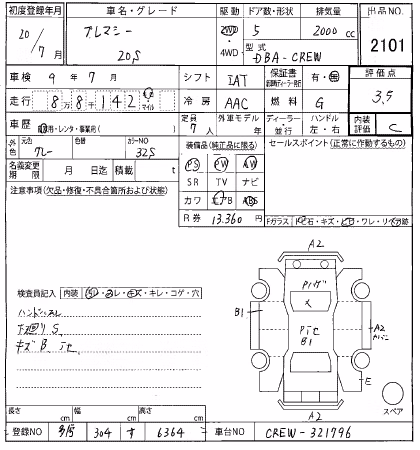 初度登録年月 車名・グレード 駆動 ドア数・形状 排気量 出品NO.
20/7月 プレマシー 20S 2WD 4WD 5 2000cc 2101
型式 DBA-CREW
車検 9年7月 シフト IAT 保証書 有・無 評価点
走行 8万8千142 km マイル 冷房 AAC 燃料 G 3.5
車歴 自家用・レンタ・事業用( ) 定員 7人 外車モデル年 ディーラー・並行 ハンドル 左・右 内装評価 C
外色 元色 グレー 色替 カラーNO 32S 装備品(純正品に限る) セールスポイント(正常に作動するもの)
名義変更期限 月 日迄 積載 t PS PW AW
注意事項(欠品・修復・不具合箇所および状態) SR TV ナビ
カワ エアB ABS
R券 13.360円 Fガラス トビ石・キズ・ヒビ・ワレ・リペア跡
A2
検査員記入 内装 ヨゴレ・スレ・キズ・キレ・コゲ・穴
ハンドルスレ
キズ B
B1
A2
E
A2
スペア
長さ cm 幅 cm 高さ cm
登録NO 304 す 6364 車台NO CREW-321796